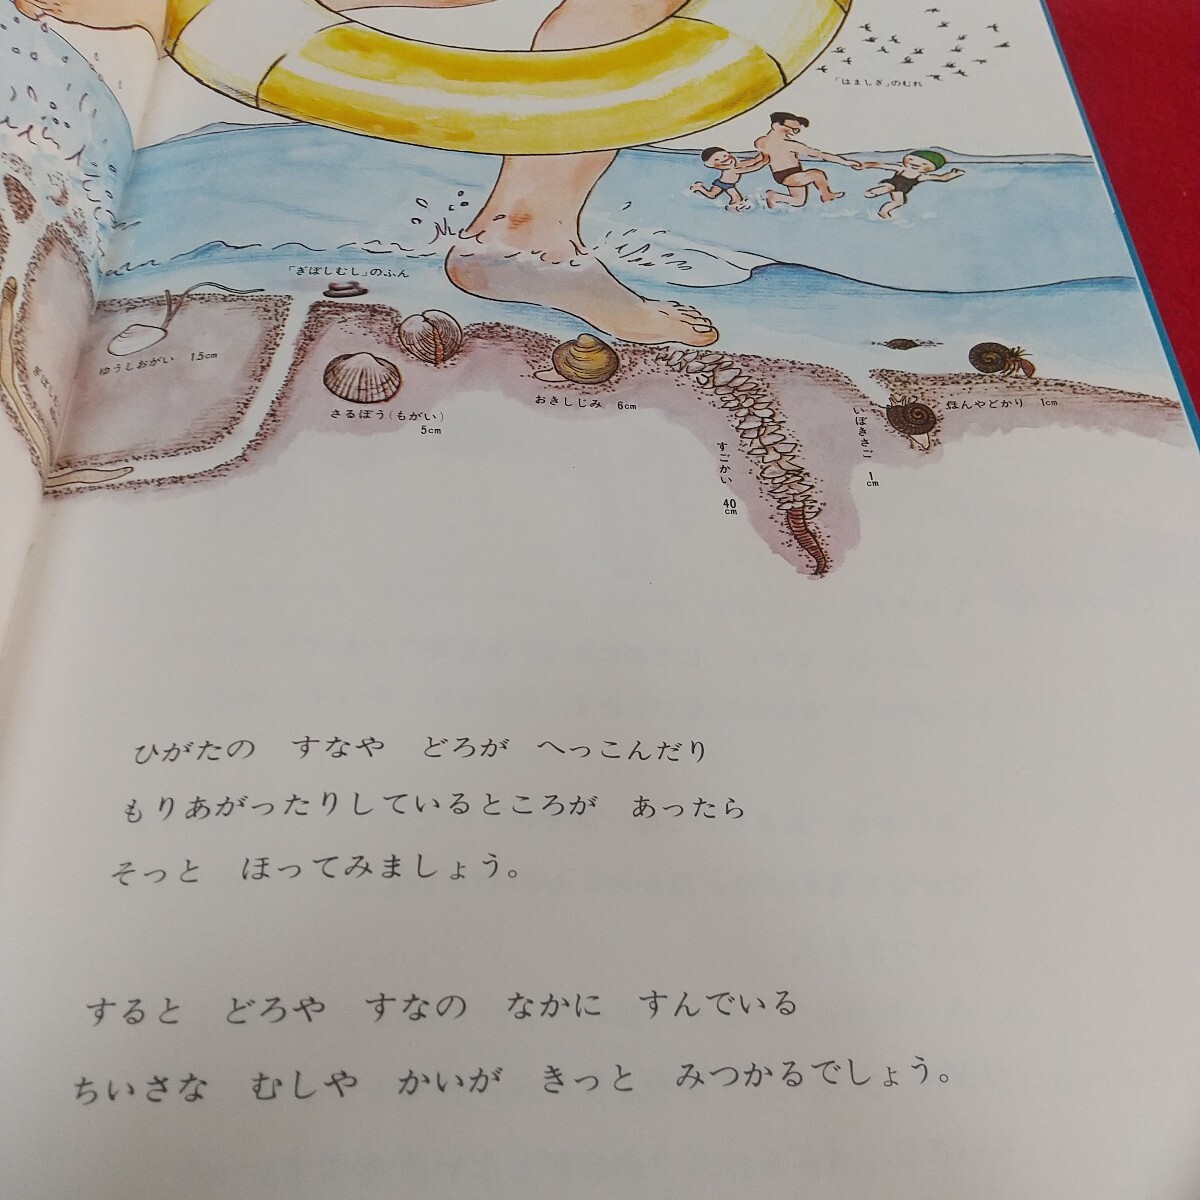 「はましぎ」のむれ
「ぎぼしむし」のふん
ゆうしおがい 1.5cm
さるぼう(もがい)
5cm
おきしじみ 6cm
すごかい
40
cm
いぼきさご
1
cm
ほんやどかり 1cm
ひがたの すなや どろが へっこんだり
もりあがったりしているところが あったら
そっと ほってみましょう。
するとどろや すなの なかに すんでいる
ちいさな むしや かいが きっと みつかるでしょう。